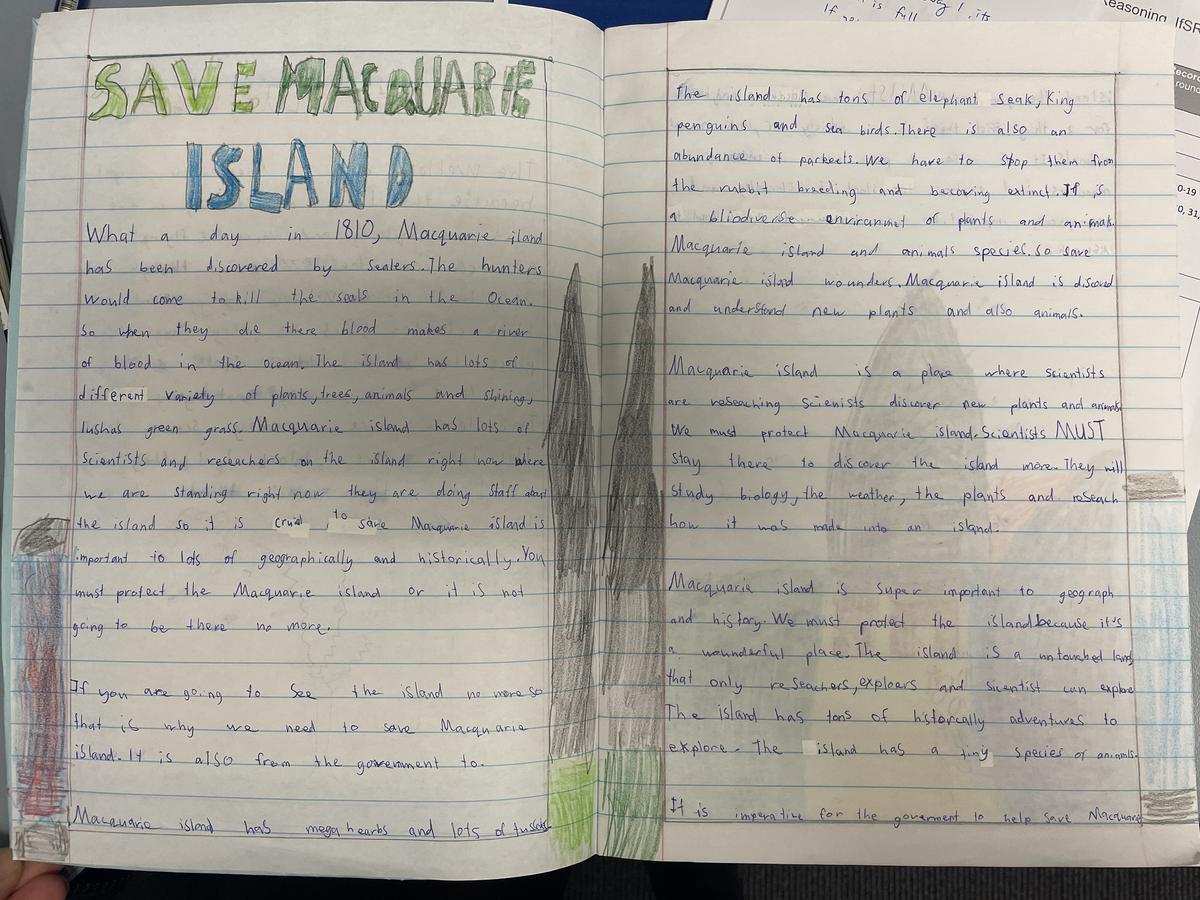 SAVE MACQUARIE
ISLAND
What a day in 1810, Macquarie iland
has been discovered by sealers. The hunters
would come to kill the seals in the Ocean.
So when they die there blood makes a river
of blood in the ocean. The island has lots of
different variety of plants, trees, animals and shining,
lushas green grass. Macquarie island has lots of
scientists and reseachers on the island right now where
we are standing right now they are doing staff about
the island so it is to save Macquarie island is
important to lots of geographically and historically. You
must protect the Macquarie island or it is not
going to be there no more.
If you are going to see the island no more so
that is why we need to save Macquarie
island. It is also from the government to.
Macquarie island has mega hearbs and lots of
The island has tons of elephant seak, King
penguins and sea birds. There is also an
abundance of parkeets. We have to stop them from
the rubbit breeding and becoving extinct. It is
a bliodiverse environmet of plants and animals.
Macquarie island and animals species. so save
Macquarie island wounders. Macquarie island is discoved
and understand new plants and also animals.
Macquarie island is a place where scientists
are reseaching Scienists discover new plants and animals
We must protect Macquarie island. Scientists MUST
stay there to discover the island more. They will
study biology, the weather, the plants and reseach
how it was made into an island.
Macquarie island is super important to geograph
and history. We must protect the island because it's
a wounderful place. The island is a untouched land
that only reseachers, exploers and scientist can explore
The island has tons of historically adventures to
explore. The island has a tiny species of animals.
It is imperative for the goverment to help save Macquarie
If
is full its
Reasoning IfSR